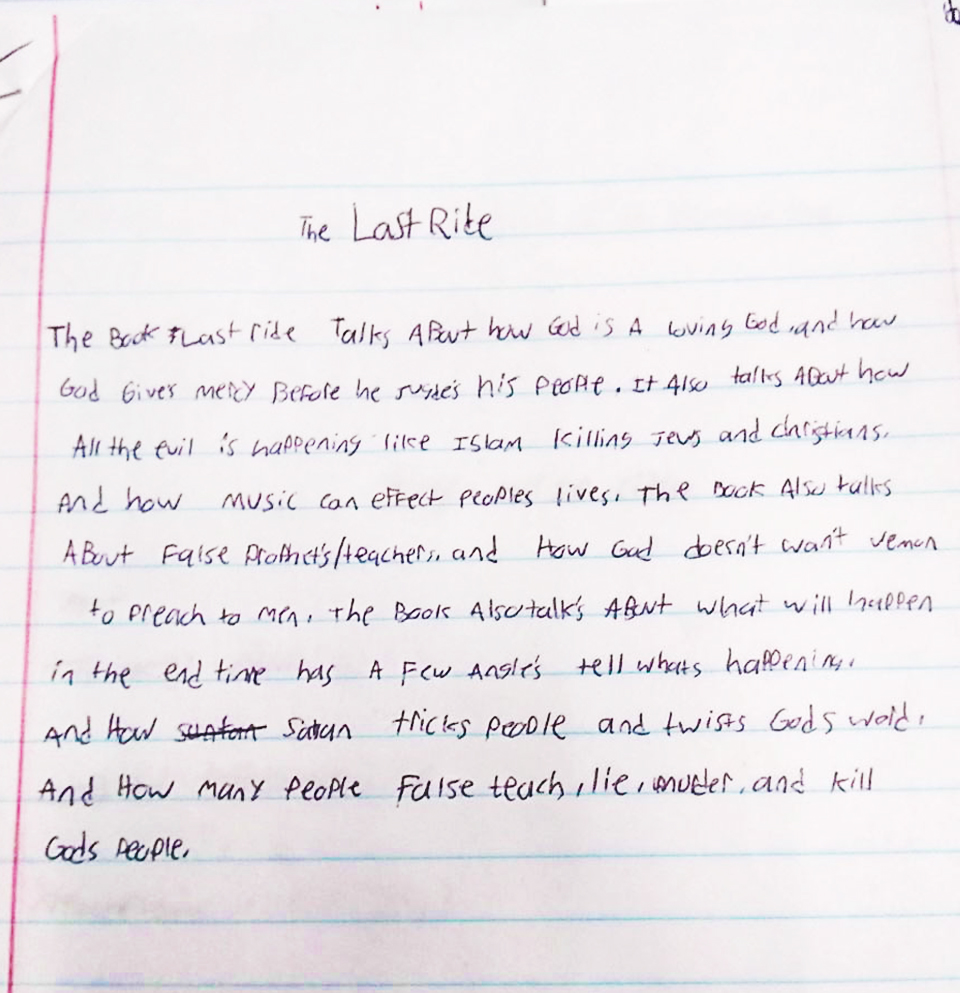 The Last Rite
The Book Last ride Talks About how God is A loving God, and how
God Gives mercy Before he his People. It Also talks About how
All the evil is happening like Islam killing Jews and christians.
And how music can effect peoples lives. The Book Also talks
About False Prophet's/teachers, and How God doesn't wan't
to preach to men. The Book Also talk's About what will happen
in the end time has A Few Angle's tell whats happening.
And How Satan tricks people and twists Gods word.
And How Many People False teach, lie, murder, and kill
Gods People.